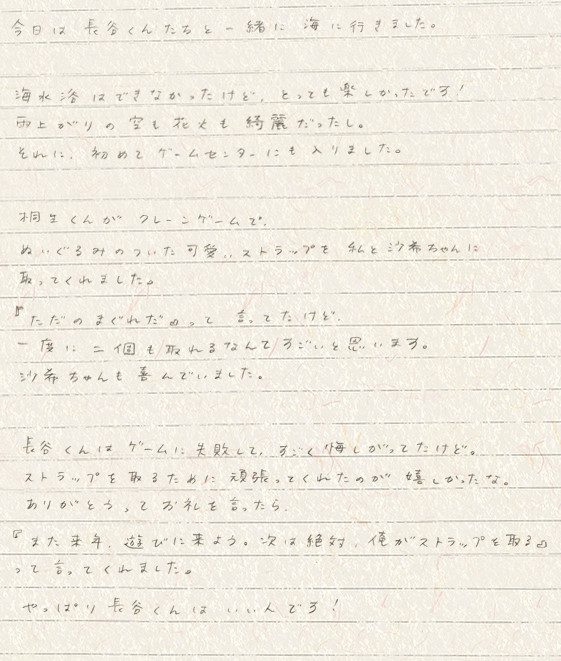 今日は長谷くんたちと一緒に海に行きました。
海水浴はできなかったけど、とっても楽しかったです！
雨上がりの空も花火も綺麗だったし。
それに、初めてゲームセンターにも入りました。
桐生くんがクレーンゲームで、
ぬいぐるみのついた可愛いストラップを私と沙希ちゃんに
取ってくれました。
『ただのまぐれだ』って言ってたけど、
一度に二個も取れるなんてすごいと思います。
沙希ちゃんも喜んでいました。
長谷くんはゲームに失敗して、すごく悔しがってたけど。
ストラップを取るために頑張ってくれたのが嬉しかったな。
ありがとうってお礼を言ったら、
『また来年、遊びに来よう。次は絶対、俺がストラップを取る』
って言ってくれました。
やっぱり長谷くんはいい人です！